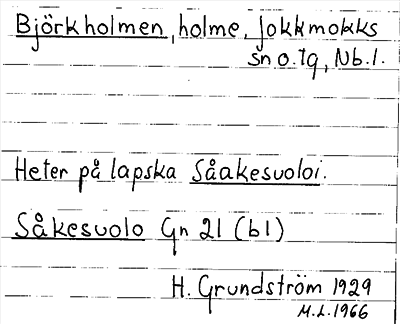 Björkholmen, holme, Jokkmokks
sn o. tg, Nb. l.
Heter på lapska Såakesuoloi.
Såkesuolo Gn 21 (b1)
H. Grundström 1929
M.L. 1966